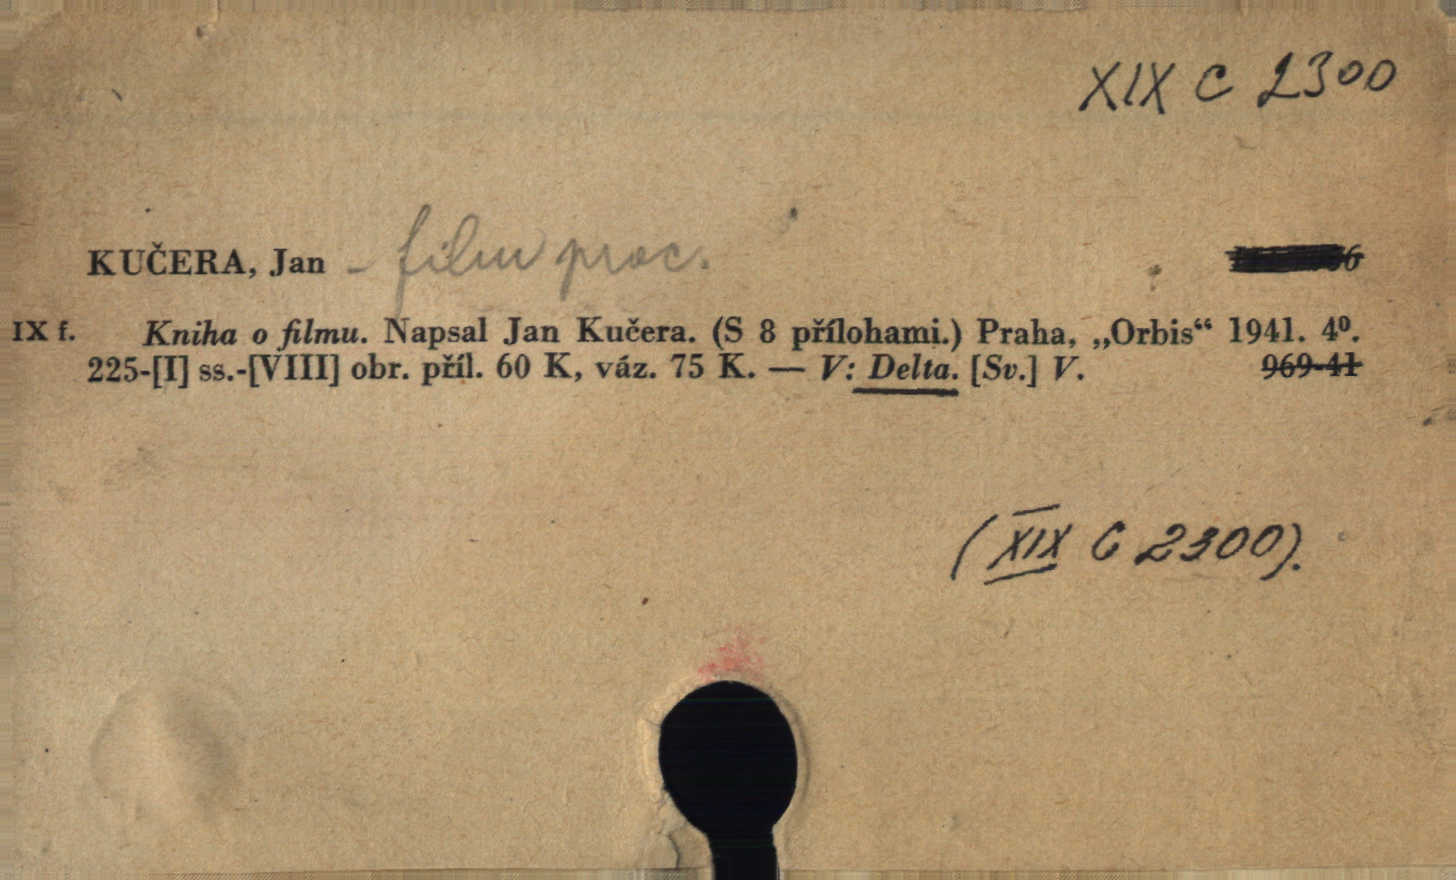 XIX C 2300
KUČERA, Jan - film prac.
IX f. Kniha o filmu. Napsal Jan Kučera. (S 8 přílohami.) Praha, „Orbis“ 1941. 4⁰.
225-[I] ss.-[VIII] obr. příl. 60 K, váz. 75 K. — V: Delta. [Sv.] V. 969-41
(XIX C 2300).